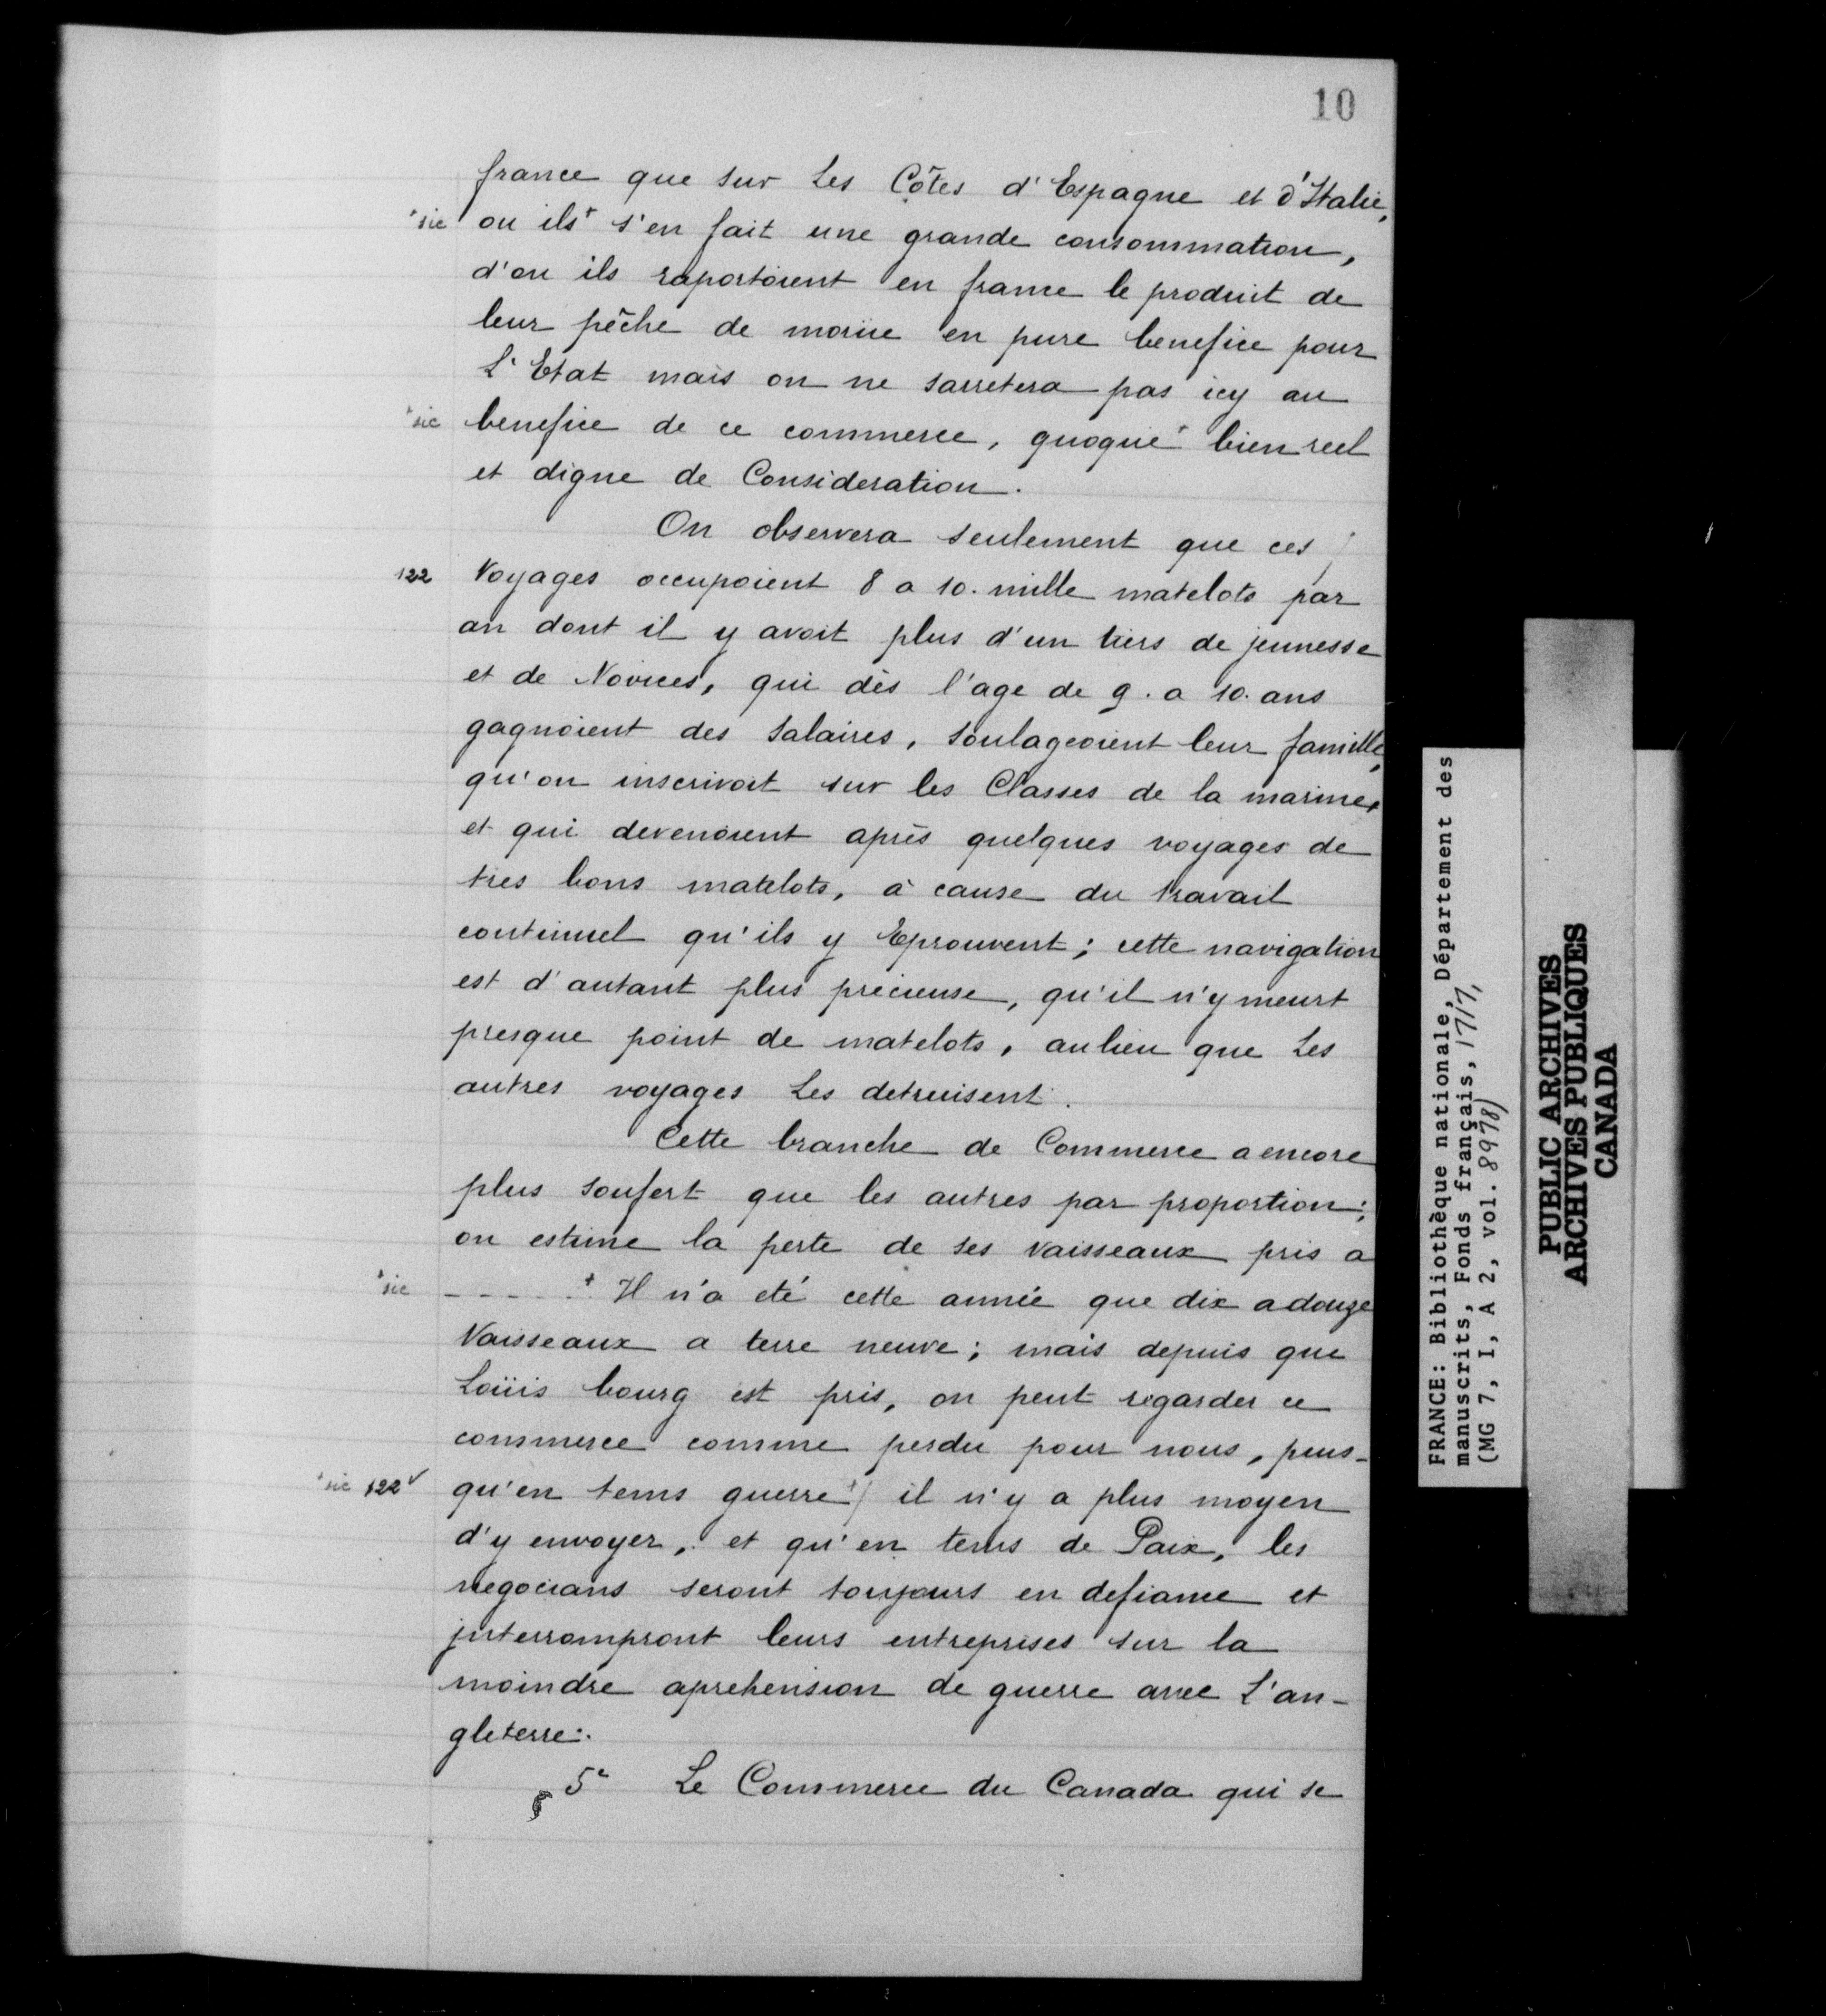 10
france que sur Les Côtes d'Espagne et d'Italie,
+sic ou ils+ s'en fait une grande consommation,
d'ou ils raportoient en france le produit de
leur pêche de moruë en pure benefice pour
L'Etat mais on ne sarretera pas icy au
+sic benefice de ce commerce, quoque+ bien reel
et digne de Consideration.
On observera seulement que ces /
122 Voyages occupoient 8 a 10. mille matelots par
an dont il y avoit plus d'un tiers de jeunesse
et de Novices, qui dès l'age de 9. a 10. ans
gagnoient des Salaires, Soulageoient leur famille,
qu'on inscrivoit sur les Classes de la marine,
et qui devenoient après quelques voyages de
tres bons matelots, à cause du travail
continuel qu'ils y Eprouvent; cette navigation
est d'autant plus précieuse, qu'il n'y meurt
presque point de matelots, aulieu que Les
autres voyages Les detruisent.
Cette branche de Commerce a encore
plus soufert que les autres par proportion;
on estime la perte de ses vaisseaux pris a
+sic - - - - - + Il n'a eté cette année que dix a douze
Vaisseaux a terre neuve; mais depuis que
Loüis bourg est pris, on peut regarder ce
commerce comme perdu pour nous, puis-
+sic 122v qu'en tems guerre+/ il n'y a plus moyen
d'y envoyer, et qu'en tems de Paix, les
negocians seront toujours en defiance et
jnterrompront leurs entreprises sur la
moindre aprehension de guerre avec L'an-
gleterre.
5e Le Commerce du Canada qui se
FRANCE: Bibliothèque nationale, Département des
manuscrits, Fonds français, 1717,
(MG 7, I, A 2, vol. 8978)
PUBLIC ARCHIVES
ARCHIVES PUBLIQUES
CANADA